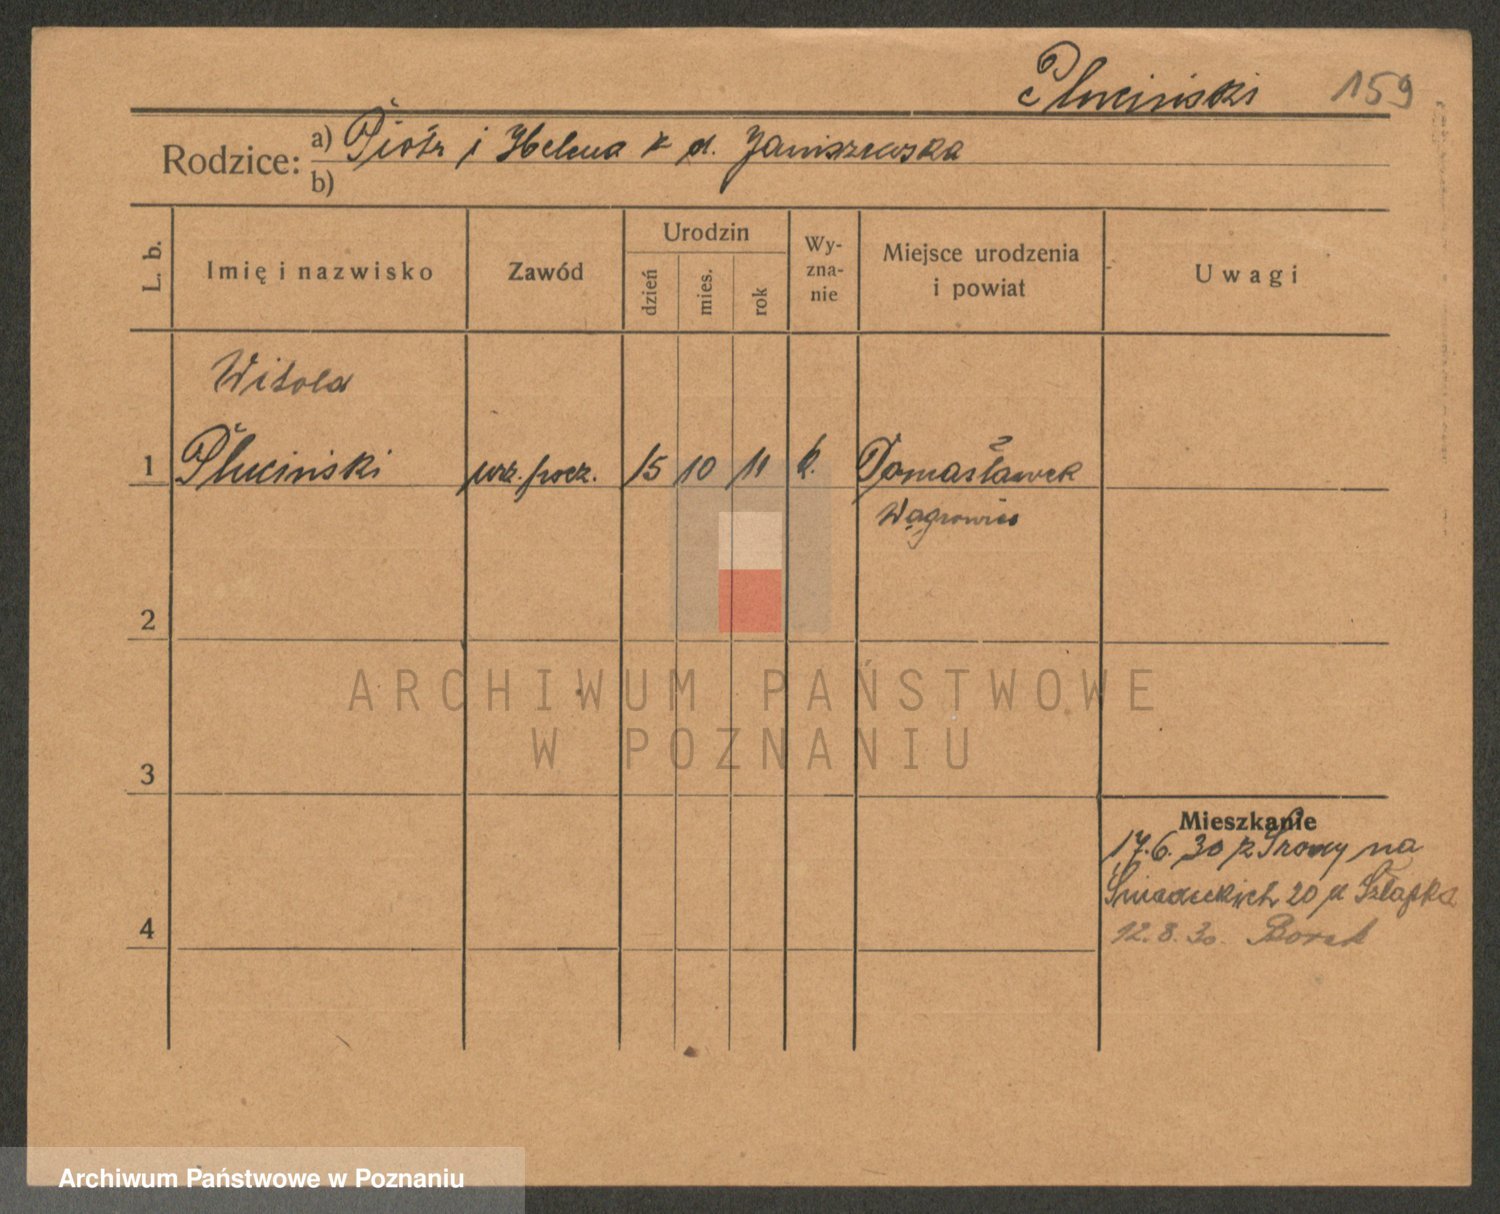 Pluciński 159
Rodzice: a) Piotr i Helena z d. Janiszewska
b)
L. b. Imię i nazwisko Zawód Urodzin dzień mies. rok Wy-zna-nie Miejsce urodzenia i powiat Uwagi
Witold
1 Pluciński urz. pocz. 15 10 11 k. Tomasławek
Wągrowiec
2
ARCHIWUM PAŃSTWOWE
W POZNANIU
3
Mieszkanie
17.6.30 z Śremu na
Śniadeckich 20 u Szłapka
4
12.8.30 Borek
Archiwum Państwowe w Poznaniu